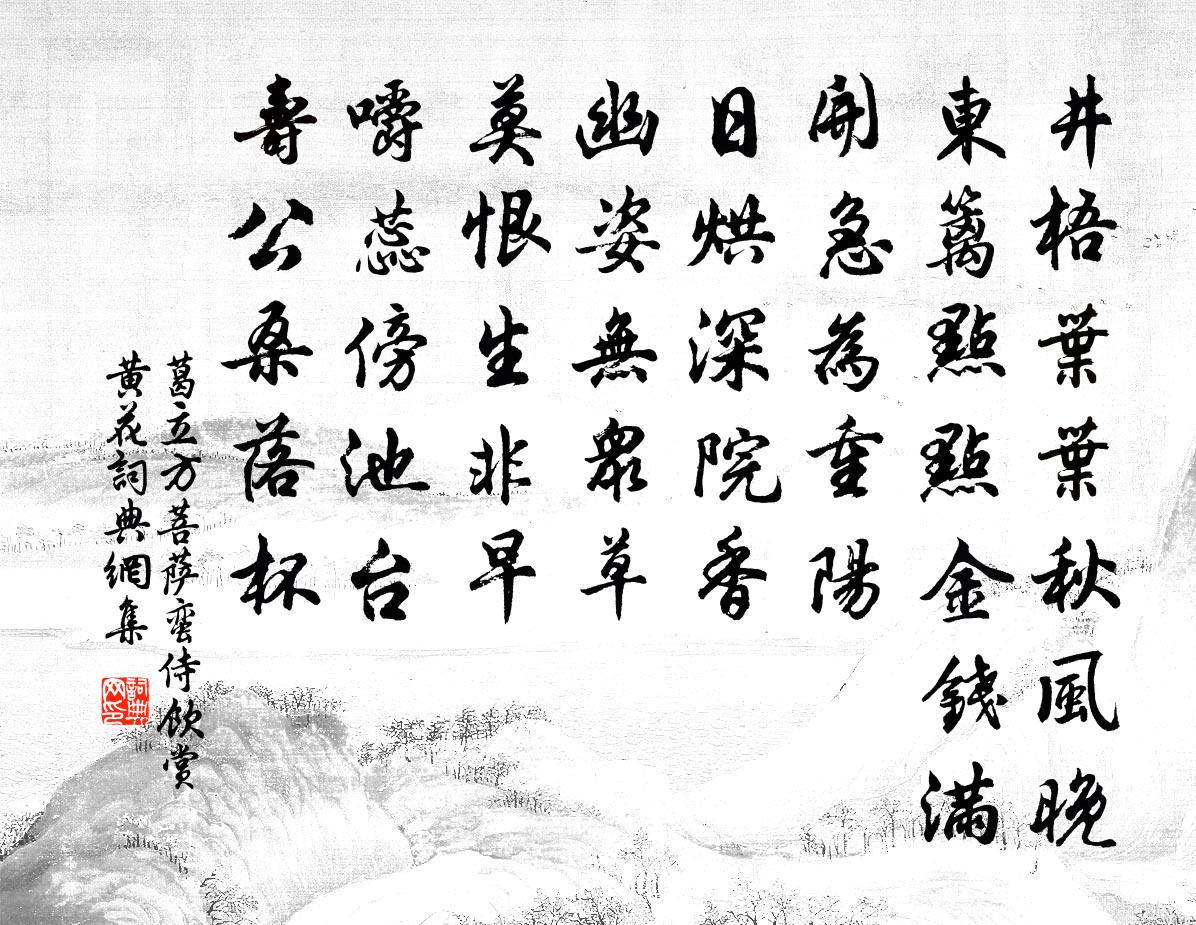 井梧葉葉秋風晚
東籬點點金錢滿
開急為重陽
日烘深院香
幽姿無眾草
莫恨生非早
嚼蕊傍池台
壽公桑落杯
葛立方菩薩蠻侍飲賞
黃花詞典網集
詞典
网印